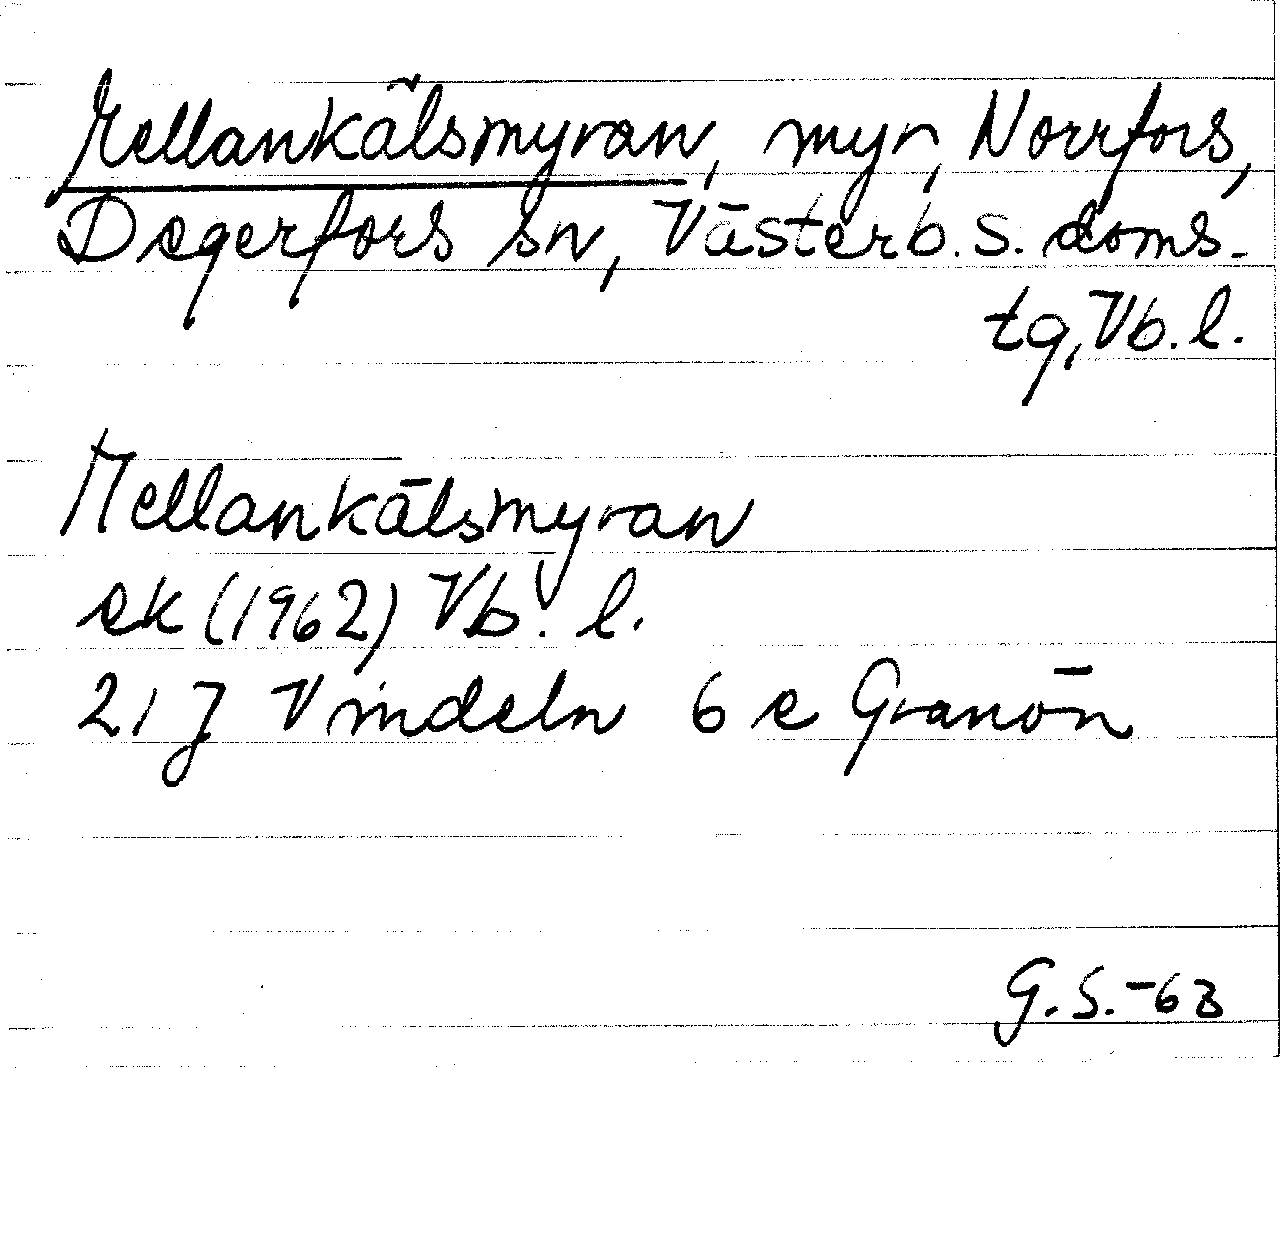 Mellankälsmyran, myr, Norrfors,
Degerfors sn, Västerb. s. doms-
tg, Vb. l.
Mellankälsmyran
ek (1962) Vb. l.
21 J Vindeln 6 e Granön
G.S.-63